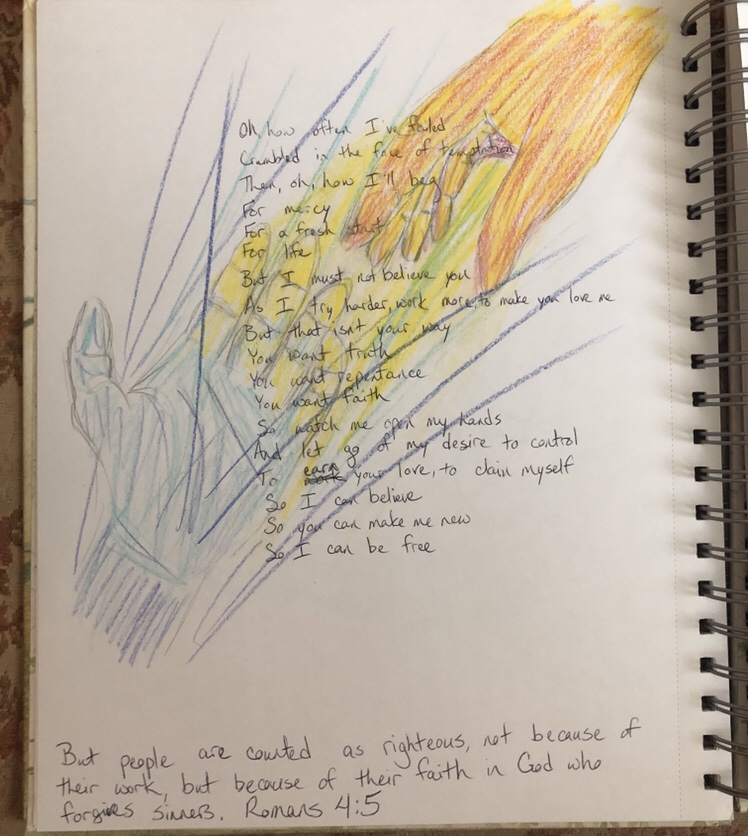 Oh, how often I've failed
Crumbled in the face of temptation
Then, oh, how I'll beg
For mercy
For a fresh start
For life
But I must not believe you
As I try harder, work more, to make you love me
But that isn't your way
You want truth
You want repentance
You want faith
So watch me open my hands
And let go of my desire to control
To work earn your love, to claim myself
So I can believe
So you can make me new
So I can be free
But people are counted as righteous, not because of
their work, but because of their faith in God who
forgives sinners. Romans 4:5